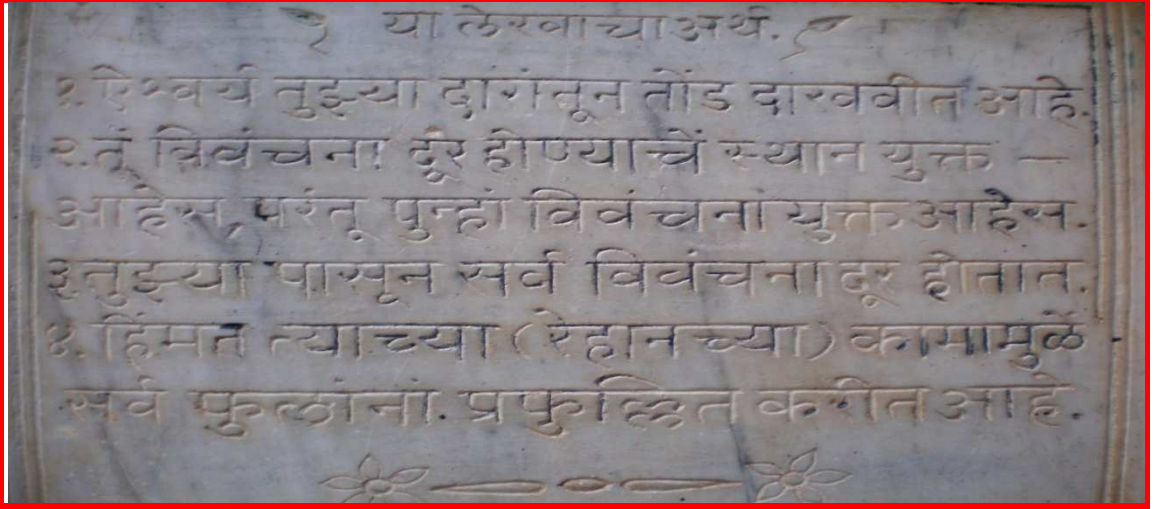 या लेखाचा अर्थ.
१. ऐश्वर्य तुझ्या दागांतून तोंड दाखवीत आहे.
२. तूं विवंचना दूर होण्याचें स्थान युक्त —
आहेस, परंतू पुन्हां विवंचना युक्त आहेस.
३ तुझ्या पासून सर्व विवंचना दूर होतात.
४. हिंमत त्याच्या (रेहानच्या) कामामुळें
सर्व फुलांनां. प्रफुल्लित करीत आहे.